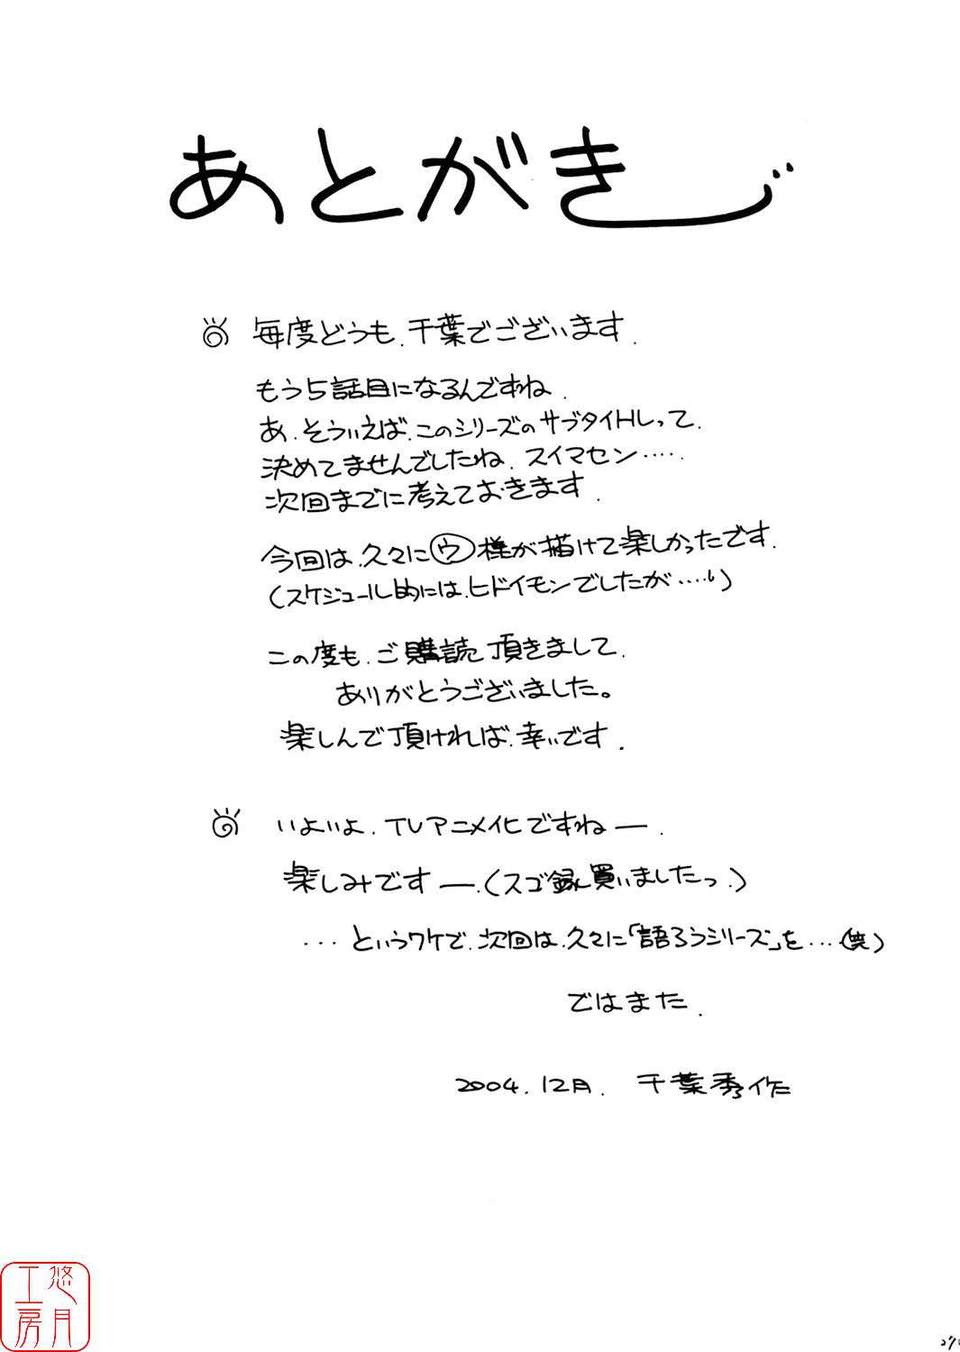 あとがき
毎度どうも、千葉でございます.
もう5話目になるんですね.
あ、そういえば、このシリーズのサブタイトルって、
決めてませんでしたね、スイマセン‥‥.
次回までに考えておきます.
今回は、久々にウ様が描けて楽しかったです.
(スケジュール的には、ヒドイモンでしたが‥‥)
この度も、ご購読頂きまして、
ありがとうございました。
楽しんで頂ければ、幸いです.
いよいよ、TVアニメイヒですねー.
楽しみですー.(スゴ録買いましたっ.)
…というワケで、次回は、久々に「語ろうシリーズ」を…(笑)
ではまた.
2004.12月. 千葉秀作
悠月工房